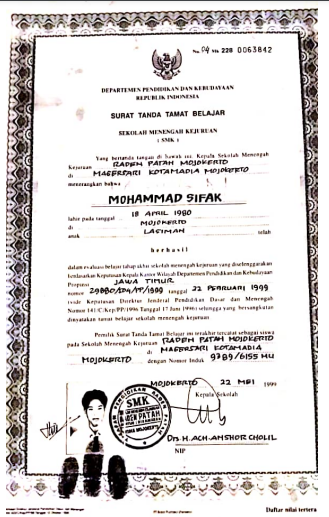 No. 04 Mk 228 0063842
DEPARTEMEN PENDIDIKAN DAN KEBUDAYAAN
REPUBLIK INDONESIA
SURAT TANDA TAMAT BELAJAR
SEKOLAH MENENGAH KEJURUAN
( SMK )
Yang bertanda tangan di bawah ini, Kepala Sekolah Menengah
Kejuruan RADEN PATAH MOJOKERTO
di MAGERSARI KOTAMADIA MOJOKERTO
menerangkan bahwa
MOHAMMAD SIFAK
lahir pada tanggal 18 APRIL 1980
di MOJOKERTO
anak LASIMAN telah
berhasil
dalam evaluasi belajar tahap akhir sekolah menengah kejuruan yang diselenggarakan
berdasarkan Keputusan Kepala Kantor Wilayah Departemen Pendidikan dan Kebudayaan
Propinsi JAWA TIMUR
nomor tanggal 22 FEBRUARI 1999
(vide Keputusan Direktur Jenderal Pendidikan Dasar dan Menengah
Nomor 141/C/Kep/PP/1996 Tanggal 17 Juni 1996) sehingga yang bersangkutan
dinyatakan tamat belajar sekolah menengah kejuruan
Pemilik Surat Tanda Tamat Belajar ini terakhir tercatat sebagai siswa
pada Sekolah Menengah Kejuruan RADEN PATAH MOJOKERTO
di MAGERSARI KOTAMADIA
MOJOKERTO dengan Nomor Induk 9789/6155 MU
MOJOKERTO 22 MEI 1999
Kepala Sekolah
SMK
RADEN PATAH
Drs. H. ACH. ANSHOR CHOLIL
NIP
Daftar nilai tertera